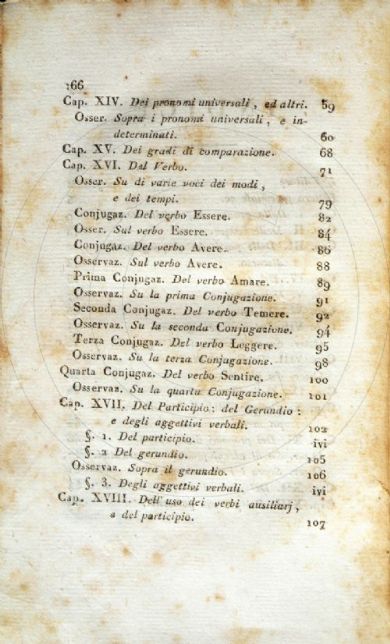 166
Cap. XIV. Dei pronomi universali, ed altri. 59
Osser. Sopra i pronomi universali, e in-
determinati. 60
Cap. XV. Dei gradi di comparazione. 68
Cap. XVI. Dal Verbo. 71
Osser. Su di varie voci dei modi,
e dei tempi. 79
Conjugaz. Del verbo Essere. 82
Osser. Sul verbo Essere. 84
Conjugaz. Del verbo Avere. 86
Osservaz. Sul verbo Avere. 88
Prima Conjugaz. Del verbo Amare. 89
Osservaz. Su la prima Conjugazione. 91
Seconda Conjugaz. Del verbo Temere. 92
Osservaz. Su la seconda Conjugazione. 94
Terza Conjugaz. Del verbo Leggere. 95
Osservaz. Su la terza Conjugazione. 98
Quarta Conjugaz. Del verbo Sentire. 100
Osservaz. Su la quarta Conjugazione. 101
Cap. XVII. Del Participio: del Gerundio:
e degli aggettivi verbali. 102
§. 1. Del participio. ivi
§. 2 Del gerundio. 105
Osservaz. Sopra il gerundio. 106
§. 3. Degli aggettivi verbali. ivi
Cap. XVIII. Dell'uso dei verbi ausiliarj,
a del participio. 107